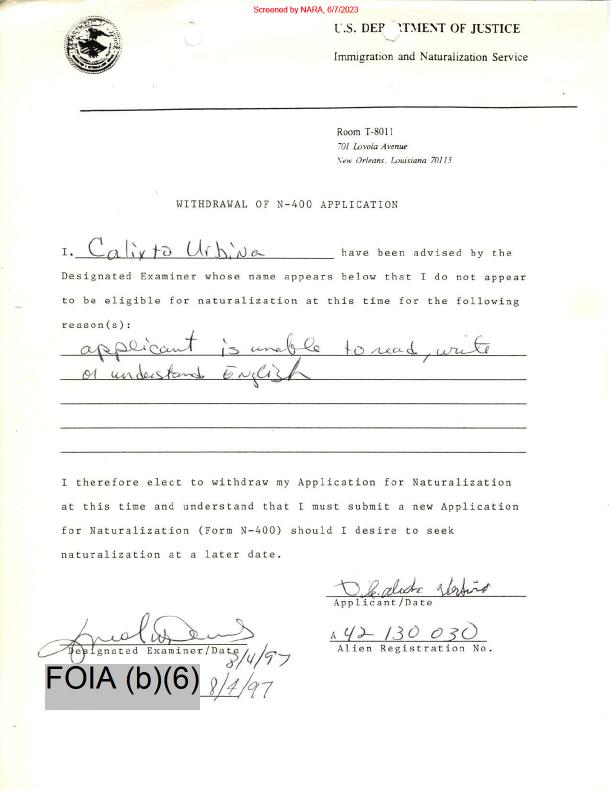 Screened by NARA, 6/7/2023
U.S. DEP RTMENT OF JUSTICE
Immigration and Naturalization Service
Room T-8011
701 Loyola Avenue
New Orleans, Louisiana 70113
WITHDRAWAL OF N-400 APPLICATION
I. Calixto Urbina have been advised by the
Designated Examiner whose name appears below that I do not appear
to be eligible for naturalization at this time for the following
reason(s):
applicant is unable to read, write
or understand English
I therefore elect to withdraw my Application for Naturalization
at this time and understand that I must submit a new Application
for Naturalization (Form N-400) should I desire to seek
naturalization at a later date.
Applicant/Date
A 42 130 030
Alien Registration No.
Designated Examiner/Date
8/4/97
FOIA (b)(6) 8/4/97